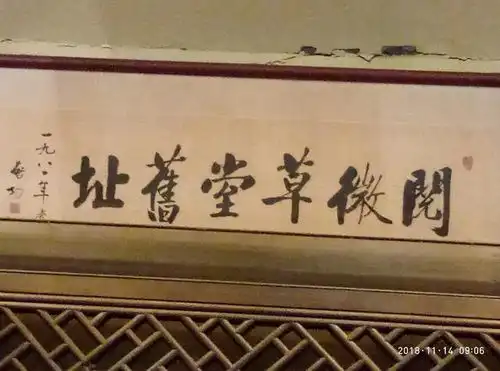 閱微草堂舊址
一九八二年春
啓功
2018-11-14 09:06